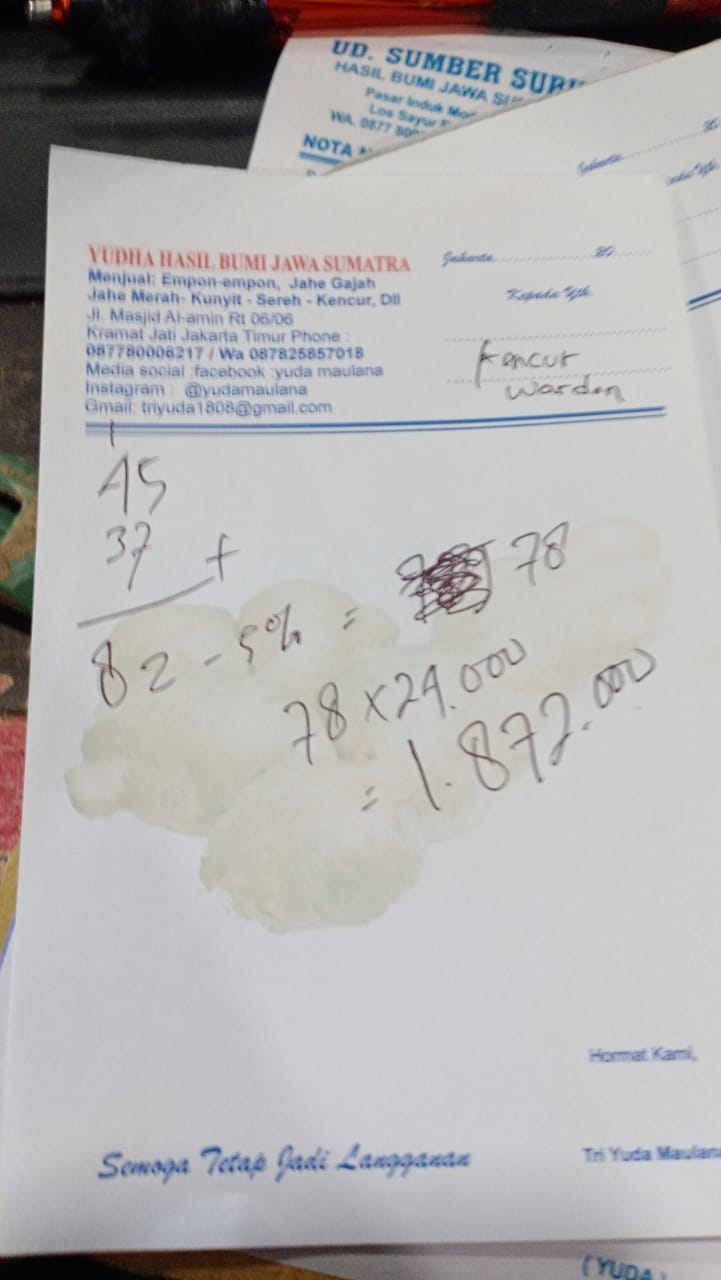 UD. SUMBER SUBU
HASIL BUMI JAWA SU
Pasar Induk
Los Sayur
WA. 0877
NOTA
Jakarta
YUDHA HASIL BUMI JAWA SUMATRA
Menjual: Empon-empon, Jahe Gajah
Jahe Merah- Kunyit - Sereh - Kencur, Dll
Jl. Masjid Al-amin Rt 06/06
Kramat Jati Jakarta Timur Phone :
087780006217 / Wa 087825857018
Media social :facebook :yuda maulana
Instagram : @yudamaulana
Gmail: triyuda1808@gmail.com
Jakarta 20
Kepada Yth.
Kencur
warden
1
45
37 +
82 - 5% = 78
78 x 24.000
= 1.872.000
Hormat Kami,
Semoga Tetap Jadi Langganan
Tri Yuda Maulana
(YUDA